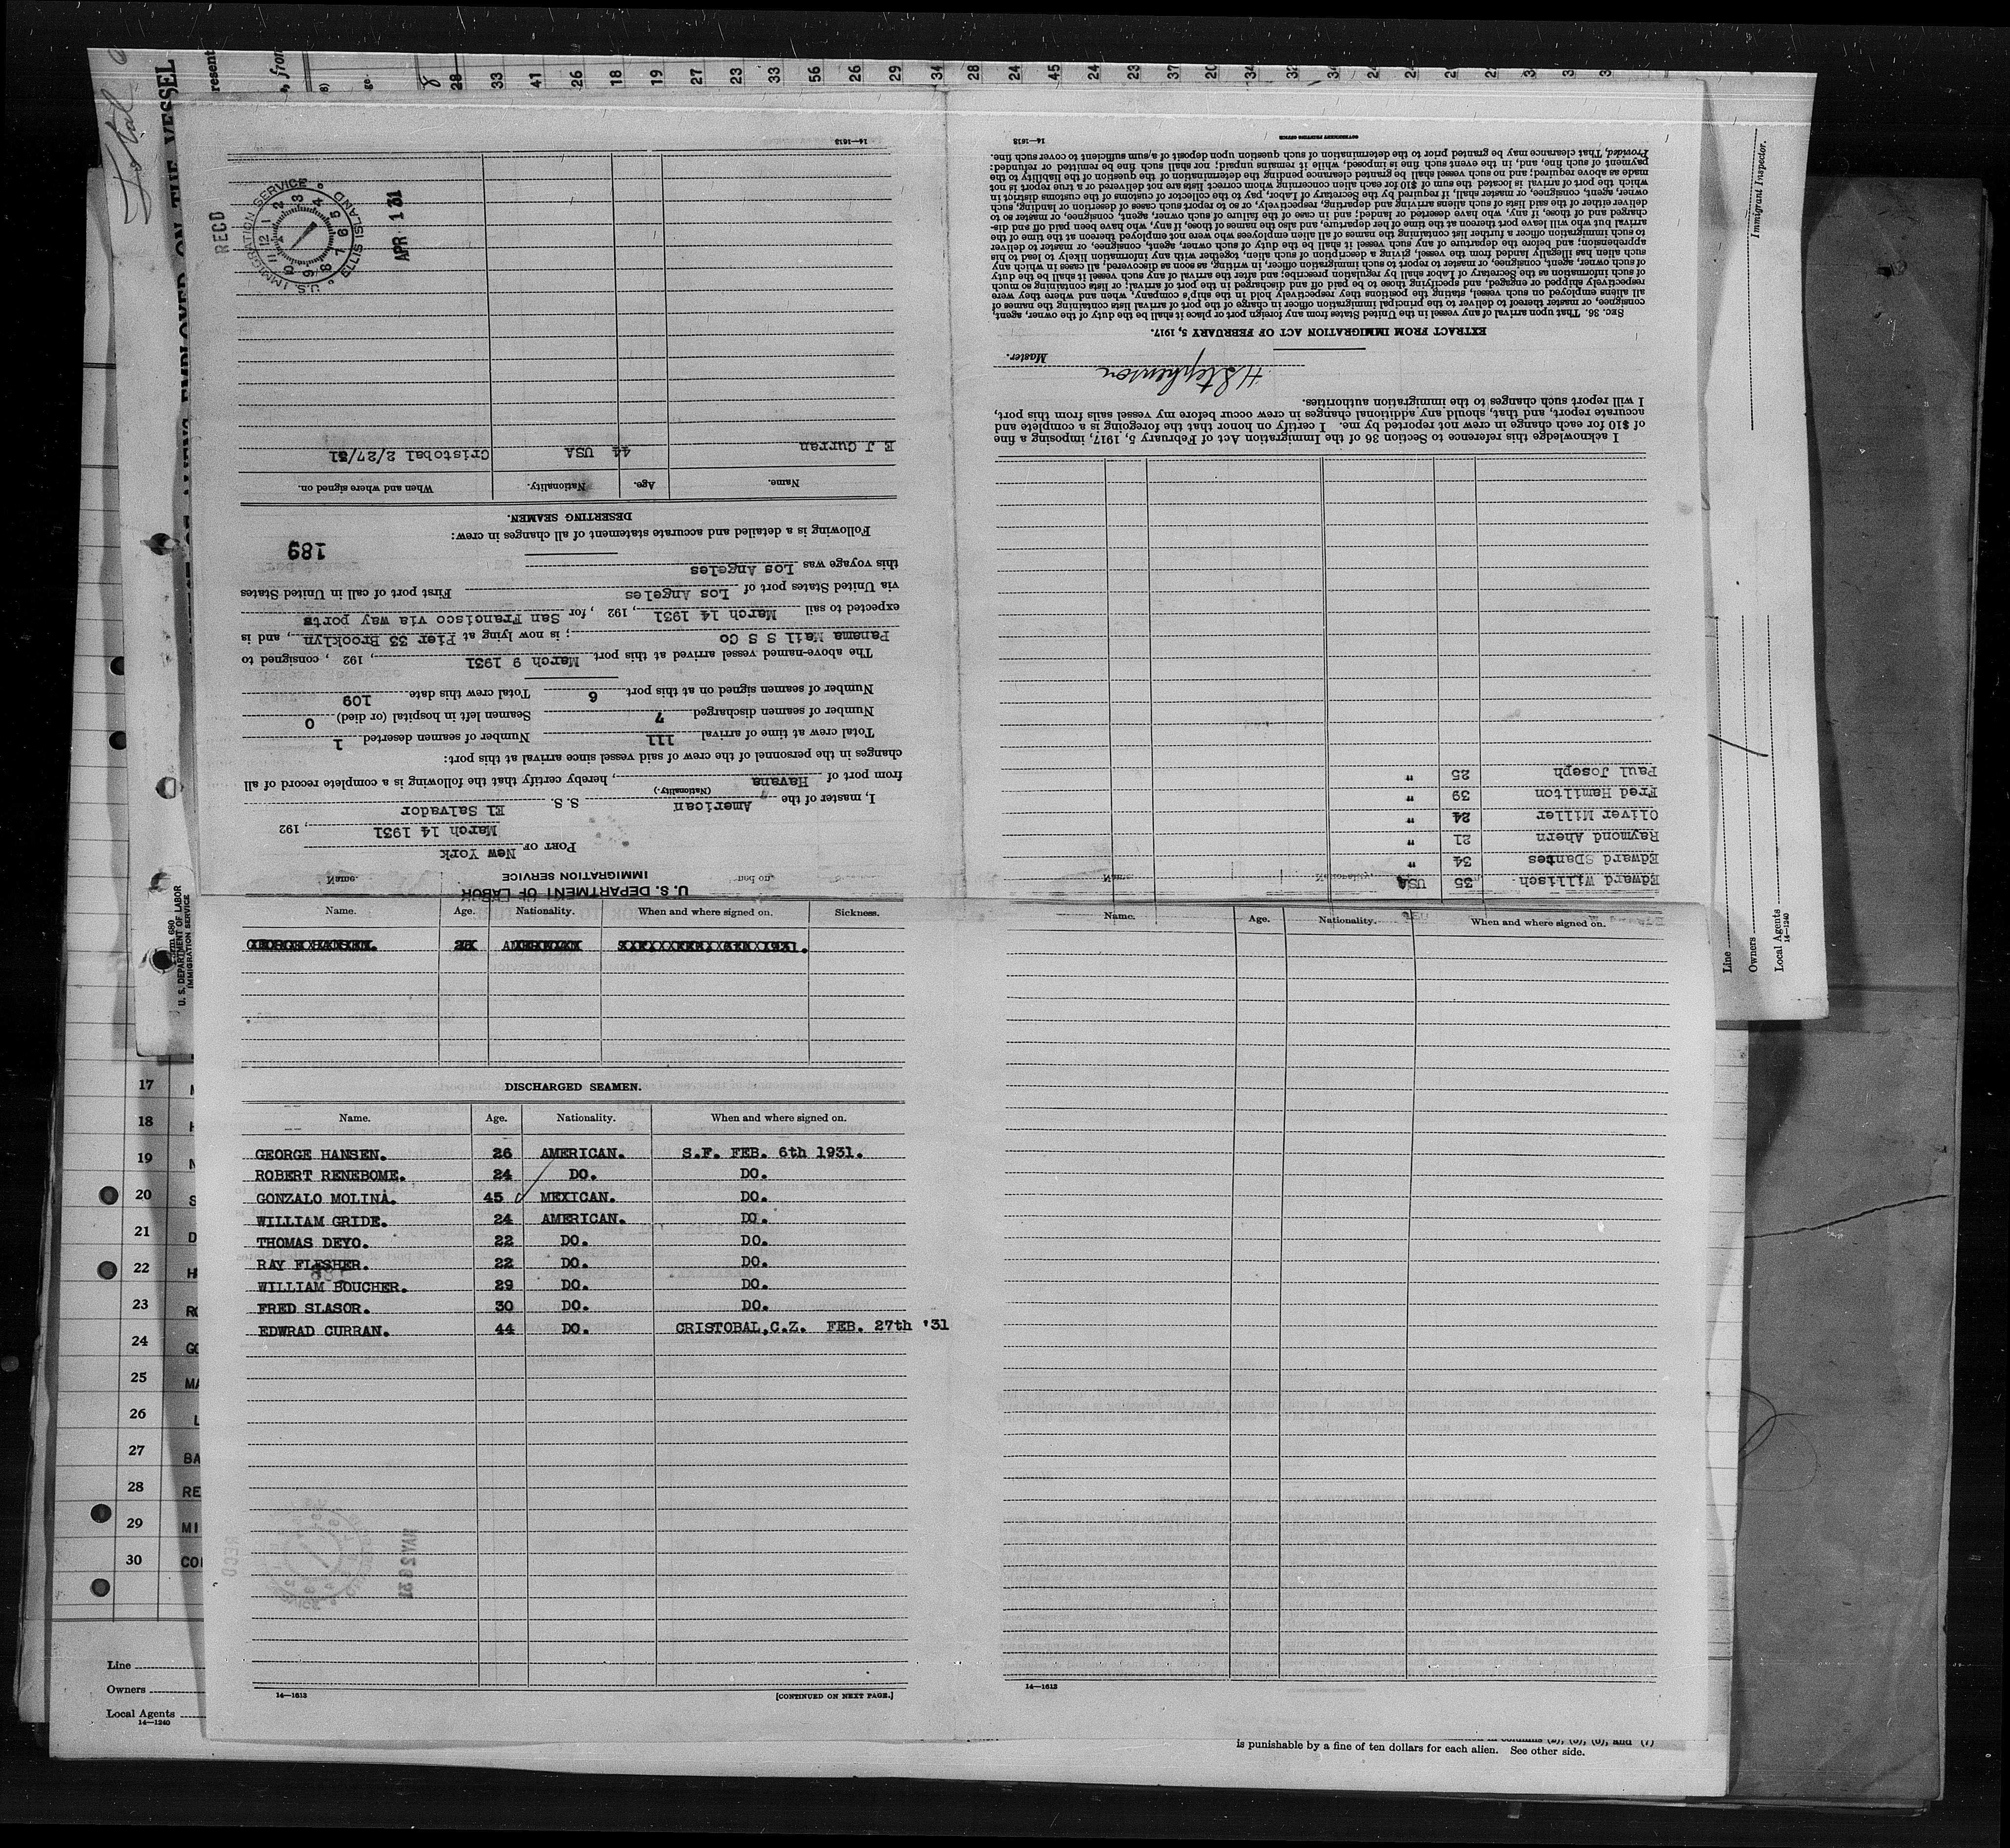 Total
resent
, from
8)
ge.
8
28 33 41 26 18 19 27 23 33 56 26 29 34 28 24 45 24 23 37 20 34
U. S. DEPARTMENT OF LABOR
IMMIGRATION SERVICE
Form 680
Immigrant Inspector.
Line
Owners
Local Agents
14—1240
U. S. DEPARTMENT OF LABOR
IMMIGRATION SERVICE
PORT OF New York
March 14 1931, 192
I, master of the American S. S. El Salvador
(Nationality.)
from port of Havana, hereby certify that the following is a complete record of all
changes in the personnel of the crew of said vessel since arrival at this port:
Total crew at time of arrival 111 Number of seamen deserted 1
Number of seamen discharged 7 Seamen left in hospital (or died) 0
Number of seamen signed on at this port 6 Total crew this date 109
The above-named vessel arrived at this port March 9 1931, 192 , consigned to
Panama Mail S S Co; is now lying at Pier 33 Brooklyn, and is
expected to sail March 14 1931, 192 , for San Francisco via way ports
via United States port of Los Angeles First port of call in United States
this voyage was Los Angeles
189
Following is a detailed and accurate statement of all changes in crew:
DESERTING SEAMEN.
Name. Age. Nationality. When and where signed on.
E J Curran 44 USA Cristobal 2/27/31
RECD
U.S. IMMIGRATION SERVICE
ELLIS ISLAND
APR 1 31
14—1613
Edward Willisch 35 USA
Edward SDantes 34 "
Raymond Ahern 21 "
Oliver Miller 24 "
Fred Hamilton 39 "
Paul Joseph 25 "
I acknowledge this reference to Section 36 of the Immigration Act of February 5, 1917, imposing a fine
of $10 for each change in crew not reported by me. I certify on honor that the foregoing is a complete and
accurate report, and that, should any additional changes in crew occur before my vessel sails from this port,
I will report such changes to the immigration authorities.
H Stephenson
Master.
EXTRACT FROM IMMIGRATION ACT OF FEBRUARY 5, 1917.
SEC. 36. That upon arrival of any vessel in the United States from any foreign port or place it shall be the duty of the owner, agent,
consignee, or master thereof to deliver to the principal immigration officer in charge of the port of arrival lists containing the names of
all aliens employed on such vessel, stating the positions they respectively hold in the ship's company, when and where they were
respectively shipped or engaged, and specifying those to be paid off and discharged in the port of arrival; or lists containing so much
of such information as the Secretary of Labor shall by regulation prescribe; and after the arrival of any such vessel it shall be the duty
of such owner, agent, consignee, or master to report to such immigration officer, in writing, as soon as discovered, all cases in which any
such alien has illegally landed from the vessel, giving a description of such alien, together with any information likely to lead to his
apprehension; and before the departure of any such vessel it shall be the duty of such owner, agent, consignee, or master to deliver
to such immigration officer a further list containing the names of all alien employees who were not employed thereon at the time of the
arrival but who will leave port thereon at the time of her departure, and also the names of those, if any, who have been paid off and dis-
charged and of those, if any, who have deserted or landed; and in case of the failure of such owner, agent, consignee, or master so to
deliver either of the said lists of such aliens arriving and departing, respectively, or so to report such cases of desertion or landing, such
owner, agent, consignee, or master shall, if required by the Secretary of Labor, pay to the collector of customs of the customs district in
which the port of arrival is located the sum of $10 for each alien concerning whom correct lists are not delivered or a true report is not
made as above required; and no such vessel shall be granted clearance pending the determination of the question of the liability to the
payment of such fine, and, in the event such fine is imposed, while it remains unpaid; nor shall such fine be remitted or refunded:
Provided, That clearance may be granted prior to the determination of such question upon deposit of a sum sufficient to cover such fine.
14—1613
GOVERNMENT PRINTING OFFICE
Name. Age. Nationality. When and where signed on. Sickness.
DISCHARGED SEAMEN.
Name. Age. Nationality. When and where signed on.
GEORGE HANSEN. 26 AMERICAN. S.F. FEB. 6th 1931.
ROBERT RENEBOME. 24 DO. DO.
GONZALO MOLINA. 45 MEXICAN. DO.
WILLIAM GRIDE. 24 AMERICAN. DO.
THOMAS DEYO. 22 DO. DO.
RAY FLESHER. 22 DO. DO.
WILLIAM BOUCHER. 29 DO. DO.
FRED SLASOR. 30 DO. DO.
EDWRAD CURRAN. 44 DO. CRISTOBAL,C.Z. FEB. 27th '31
14—1613
[CONTINUED ON NEXT PAGE.]
Name. Age. Nationality. When and where signed on.
14—1613
17
18
19
20
21
22
23
24
25
26
27 BA
28 RE
29 MI
30
RECD
MAY 26 31
Line
Owners
Local Agents
14—1240
is punishable by a fine of ten dollars for each alien. See other side.